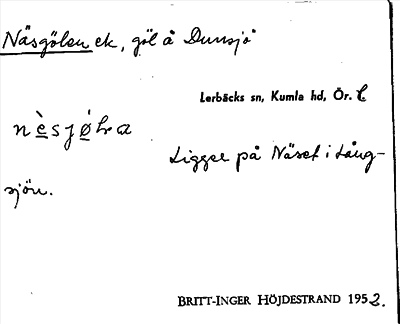 Näsgölen ek, göl å Dunsjö
Lerbäcks sn, Kumla hd, Ör. l
nè̱sjǿ̱lra
Ligger på Näset i Lång-
sjön.
BRITT-INGER HÖJDESTRAND 1952.